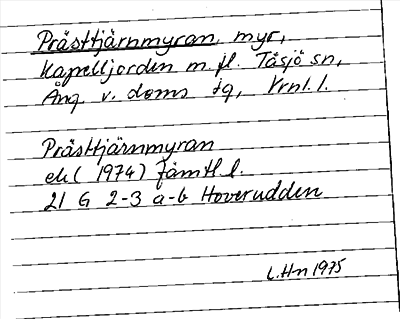 Prästtjärnmyran, myr,
Kapelljorden m. fl. Tåsjö sn,
Ång. v. doms tg, Vrnl. l.
Prästtjärnmyran
ek ( 1974) Jämtl l.
21 G 2-3 a-b Hoverudden
L.Hn 1975